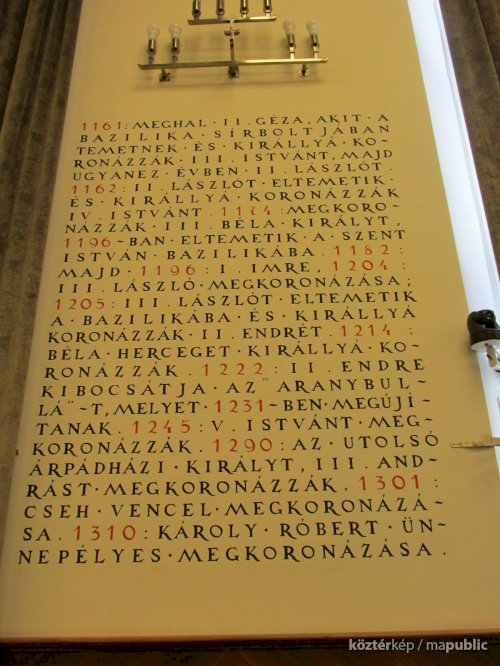 1161: MEGHAL · II. GÉZA, AKIT · A
BAZILIKA · SÍRBOLTJÁBAN
TEMETNEK · ÉS · KIRÁLLYÁ · KO-
RONÁZZÁK · III. ISTVÁNT, MAJD
UGYANEZ · ÉVBEN · II. LÁSZLÓT.
1162: II. LÁSZLÓT · ELTEMETIK ·
ÉS · KIRÁLLYÁ · KORONÁZZÁK
IV. ISTVÁNT. 1174: MEGKORO-
NÁZZÁK · III. BÉLA · KIRÁLYT,
1196-BAN · ELTEMETIK · A · SZENT
ISTVÁN · BAZILIKÁBA. 1182:
MAJD · 1196: I. IMRE, 1204:
III. LÁSZLÓ · MEGKORONÁZÁSA;
1205: III. LÁSZLÓT · ELTEMETIK
A · BAZILIKÁBA · ÉS · KIRÁLLYÁ
KORONÁZZÁK · II. ENDRÉT. 1214:
BÉLA · HERCEGET · KIRÁLLYÁ · KO-
RONÁZZÁK. 1222: II. ENDRE
KIBOCSÁTJA · AZ "ARANYBUL-
LÁ"-T, MELYET · 1231-BEN · MEGÚJÍ-
TANAK. 1245: V. ISTVÁNT · MEG-
KORONÁZZÁK. 1290: AZ · UTOLSÓ
ÁRPÁDHÁZI · KIRÁLYT, III. AND-
RÁST · MEGKORONÁZZÁK. 1301:
CSEH · VENCEL · MEGKORONÁZÁ-
SA. 1310: KÁROLY · RÓBERT · ÜN-
NEPÉLYES · MEGKORONÁZÁSA.
köztérkép / mapublic